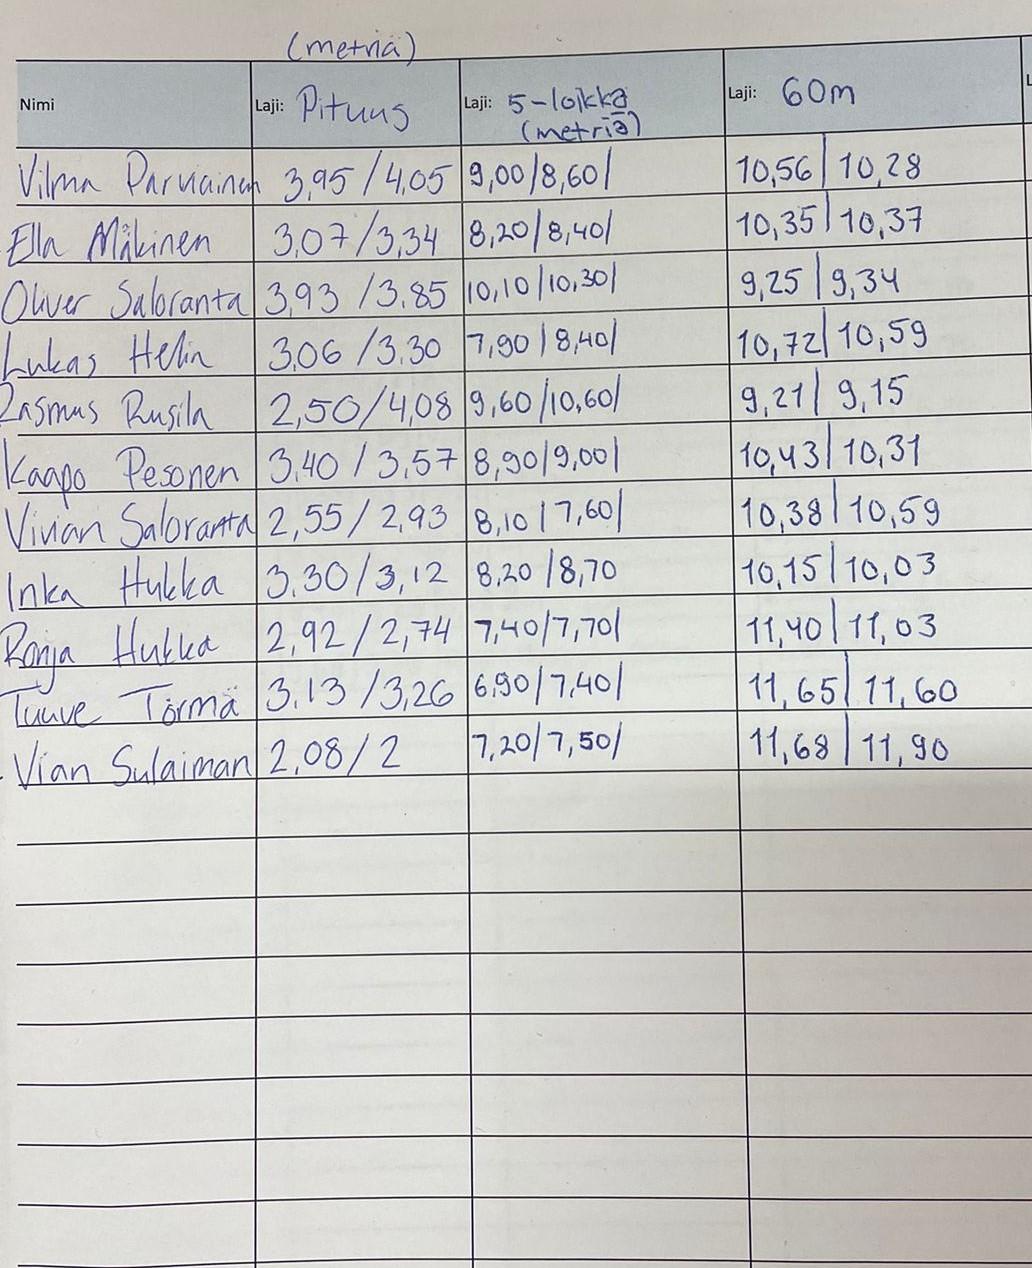 (metriä)
Nimi Laji: Pituus Laji: 5-loikka Laji: 60m L
(metriä)
Vilma Parviainen 3,95/4,05 9,00/8,60/ 10,56/10,28
Ella Mäkinen 3,07/3,34 8,20/8,40/ 10,35/10,37
Oliver Saloranta 3,93/3.85 10,10/10,30/ 9,25/9,34
Lukas Helin 3,06/3.30 7,90/8,40/ 10,72/10,59
Rasmus Rusila 2,50/4,08 9,60/10,60/ 9,21/9,15
Kaapo Pesonen 3,40/3,57 8,90/9,00/ 10,43/10,31
Vivian Saloranta 2,55/2,93 8,10/7,60/ 10,38/10,59
Inka Hukka 3,30/3,12 8,20/8,70 10,15/10,03
Ronja Hukka 2,92/2,74 7,40/7,70/ 11,40/11,03
Tuuve Törmä 3,13/3,26 6,90/7,40/ 11,65/11,60
Vian Sulaiman 2,08/2 7,20/7,50/ 11,68/11,90